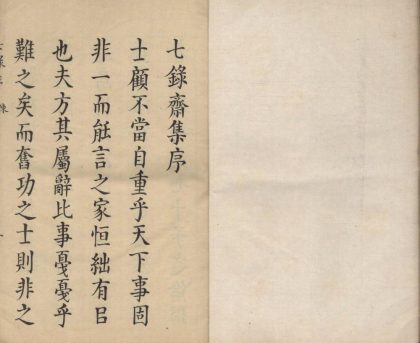 七錄齋集序
士顧不當自重乎天下事固
非一而能言之家恒絀有㠯
也夫方其屬辭比事戞戞乎
難之矣而奮功之士則非之